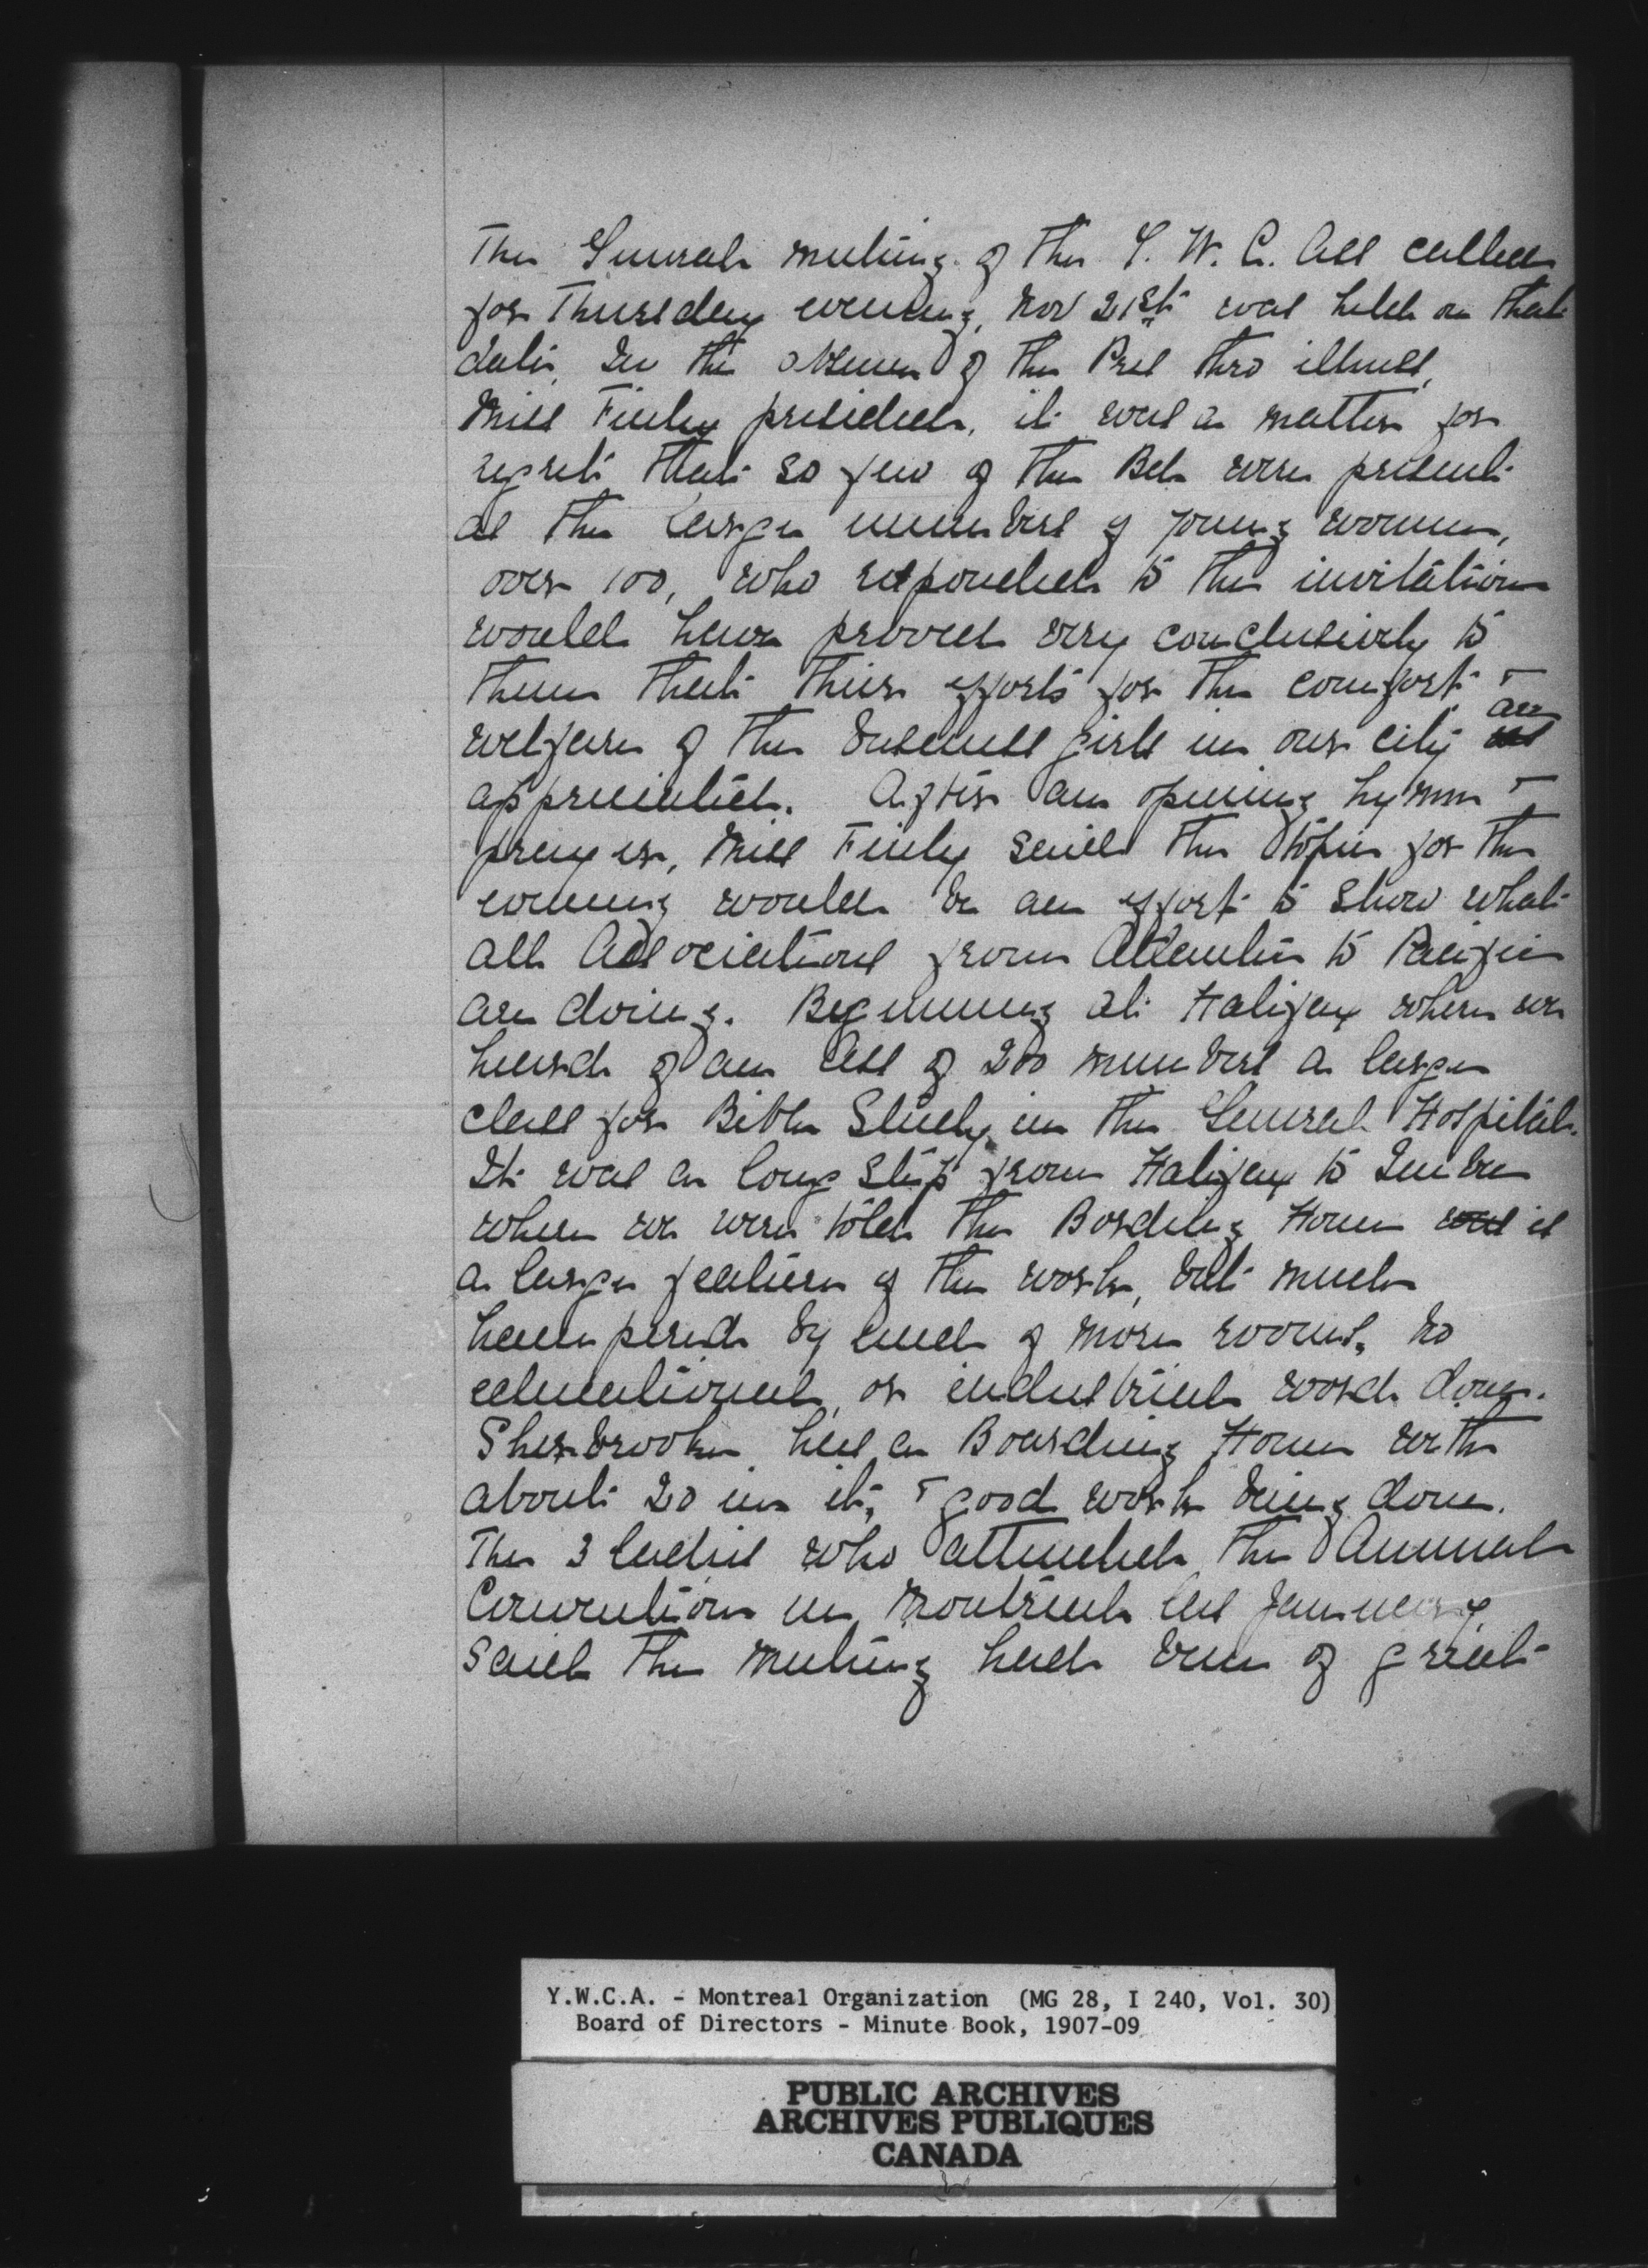 The General meeting of the Y. W. C. Ass called
for Thursday evening, Nov 21st was held on that
date. In the absence of the Pres thro illness,
Miss Finley presided. it was a matter for
regret that so few of the Bd. were present
as the large numbers of young women,
over 100, who responded to the invitation
would have proved very conclusively to
them that their efforts for the comfort &
welfare of the business girls in our city are
appreciated. After an opening hymn &
prayer, Miss Finley said the topic for the
evening would be an effort to show what
all Associations from Atlantic to Pacific
are doing. Beginning at Halifax where we
heard of an Ass of 200 members a large
class for Bible Study in the General Hospital.
It was a long step from Halifax to Quebec
where we were told the Bording Home was is
a large feature of the work, but much
hampered by need of more rooms. No
educational, or industrial work done.
Sherbrooke has a Boarding Home with
about 20 in it, & good work being done.
The 3 ladies who attended the Annual
Convention in Montreal last January
said the meeting had been of great
Y.W.C.A. - Montreal Organization (MG 28, I 240, Vol. 30)
Board of Directors - Minute Book, 1907-09
PUBLIC ARCHIVES
ARCHIVES PUBLIQUES
CANADA